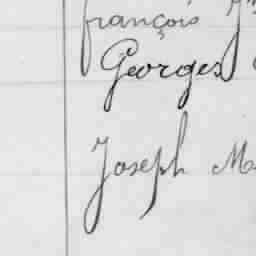 françois
Georges
Joseph M